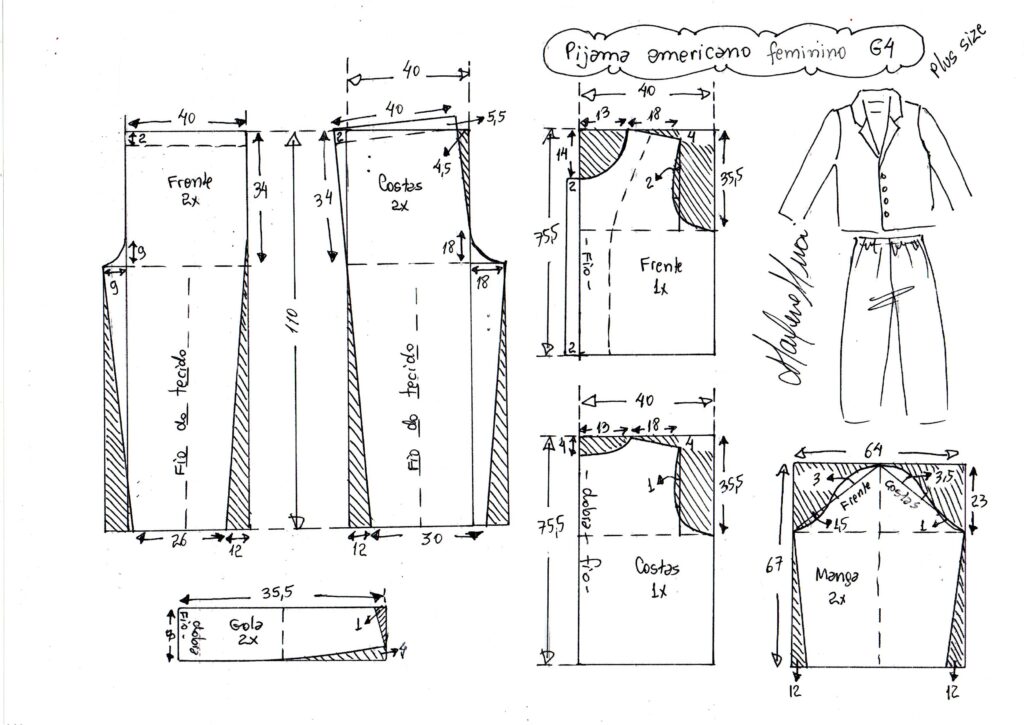 Pijama americano feminino G4
plus size
40
2
Frente
2x
34
9
9
Fio do tecido
26
12
110
40
40
5,5
2
4,5
34
Costas
2x
18
18
Fio do tecido
12
30
40
13
18
14
4
2
2
35,5
75,5
- Fio -
Frente
1x
2
Marlene Mukai
40
13
18
4
4
1
35,5
75,5
- dobra - fio -
Costas
1x
64
3
Frente
Costas
3,5
23
1,5
1
67
Manga
2x
12
12
35,5
8
Fio -
dobra
Gola
2x
1
4